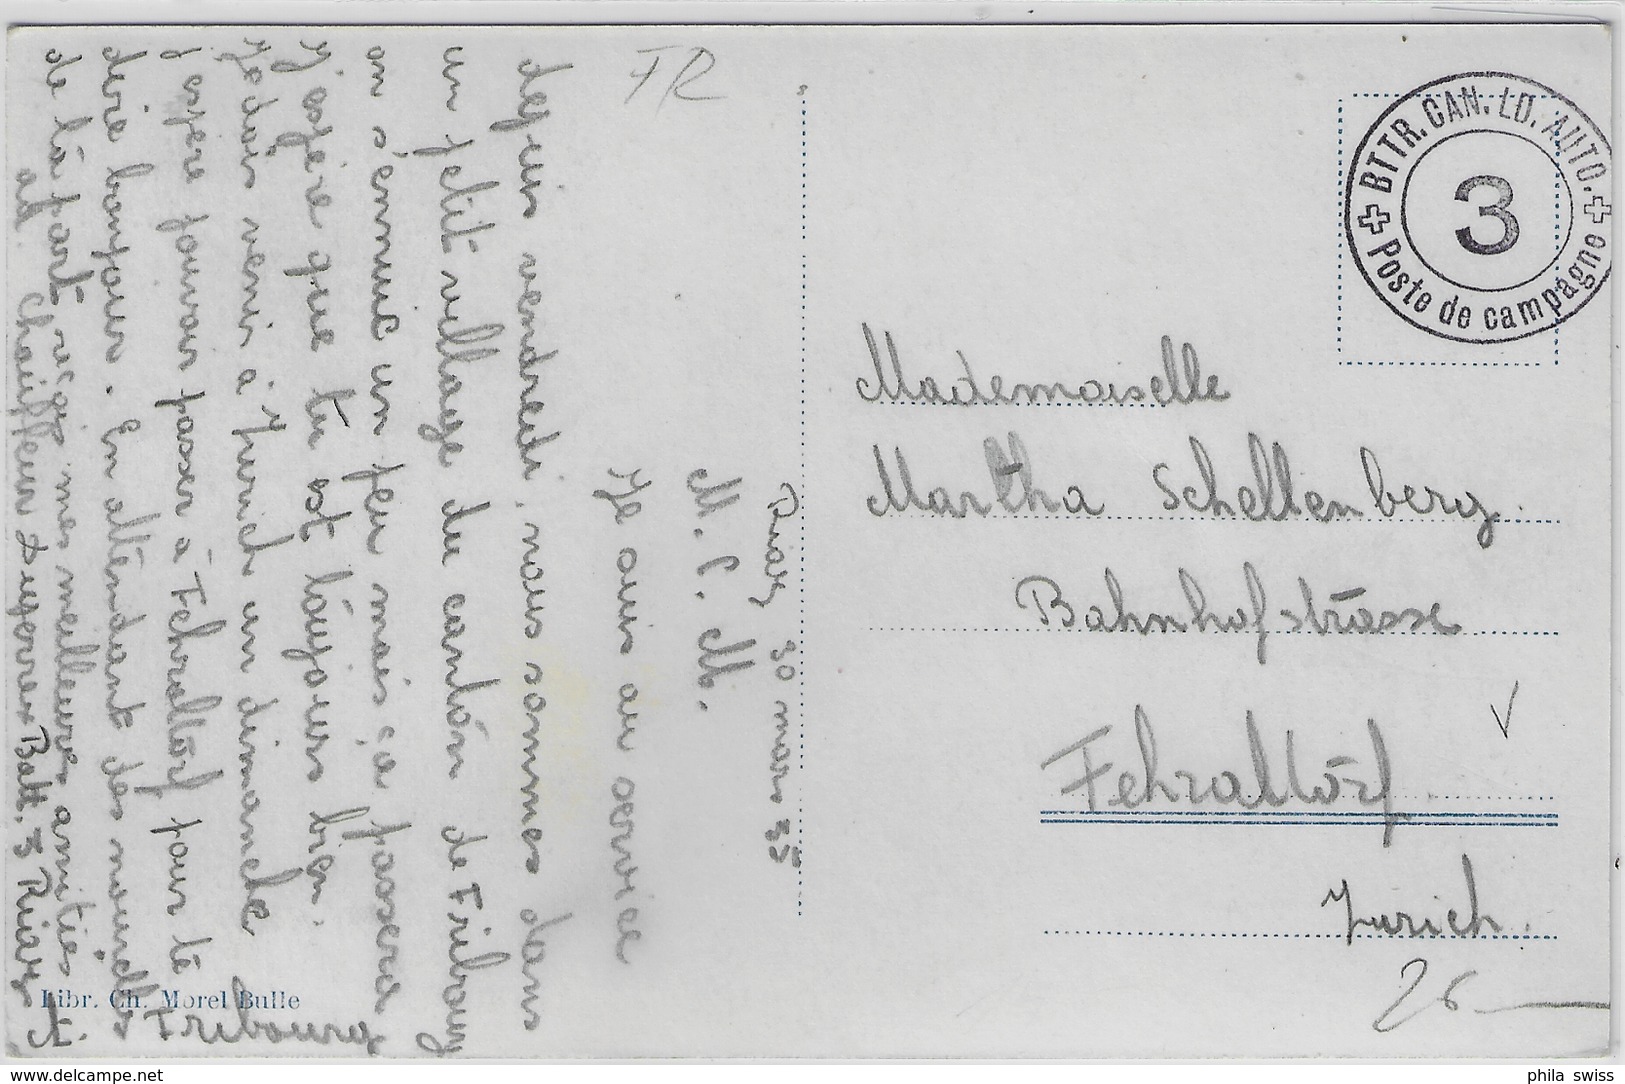 FR
BTTR. CAN. LD. AUTO.
3
Poste de campagne
Riaz 30 mars 35
M. P. M.
Je suis au service
depuis vendredi, nous sommes dans
un petit village du canton de Fribourg
on s'ennuie un peu mais ça passera
J'espère que tu est toujours bien.
Jadais venir à Zurich un dimanche
j'espère pouvoir passer à Fehraltorf pour te
dire bonjour. En attendant des nouvelles
de ta part reçois mes meilleures amitiés
ad. Chauffeur Batt. 3 Riaz
Fribourg
Mademoiselle
Martha Schellenberg
Bahnhofstrasse
Fehraltorf
Zurich.
26
Libr. Ch. Morel Bulle
www.delcampe.net
phila swiss